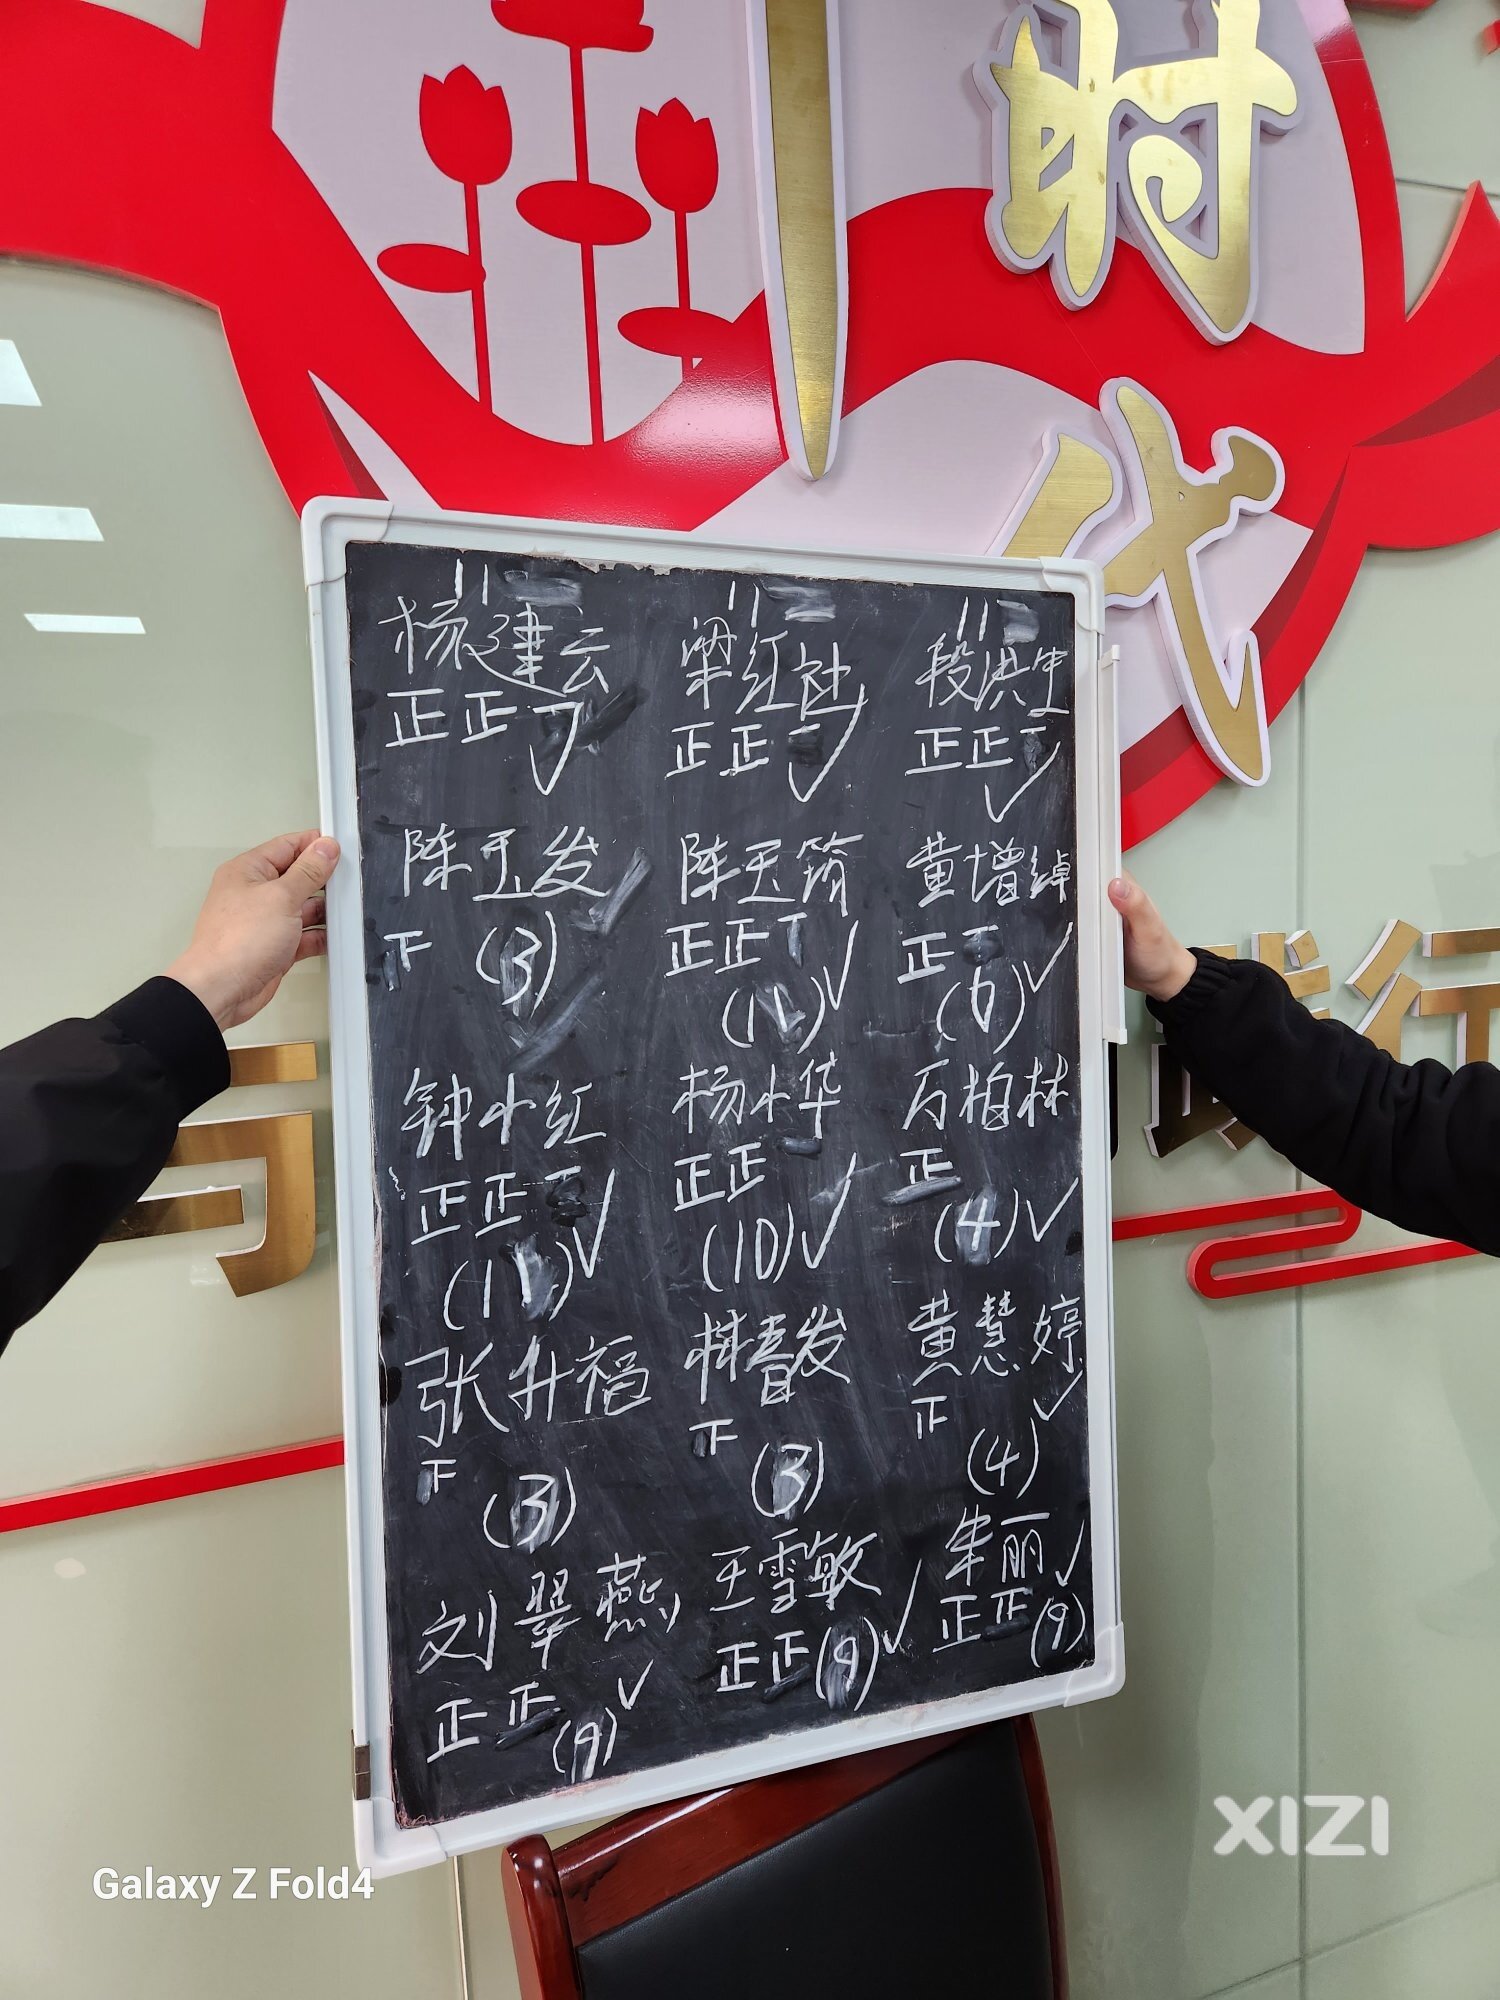 时
代
11 11 11
杨建云 梁红社 段洪生
正正丁 正正 正正
陈玉发 陈玉筠 黄增绰
下 (3) 正正丅 (11) 正一 (6)
钟小红 杨小华 万柏林
正正一 (11) 正正 (10) 正 (4)
张升福 林春发 黄慧婷
下 (3) 下 (3) 正 (4)
刘翠燕 王雪敏 朱丽
正正 (9) 正正 (9) 正正 (9)
行
XIZI
Galaxy Z Fold4